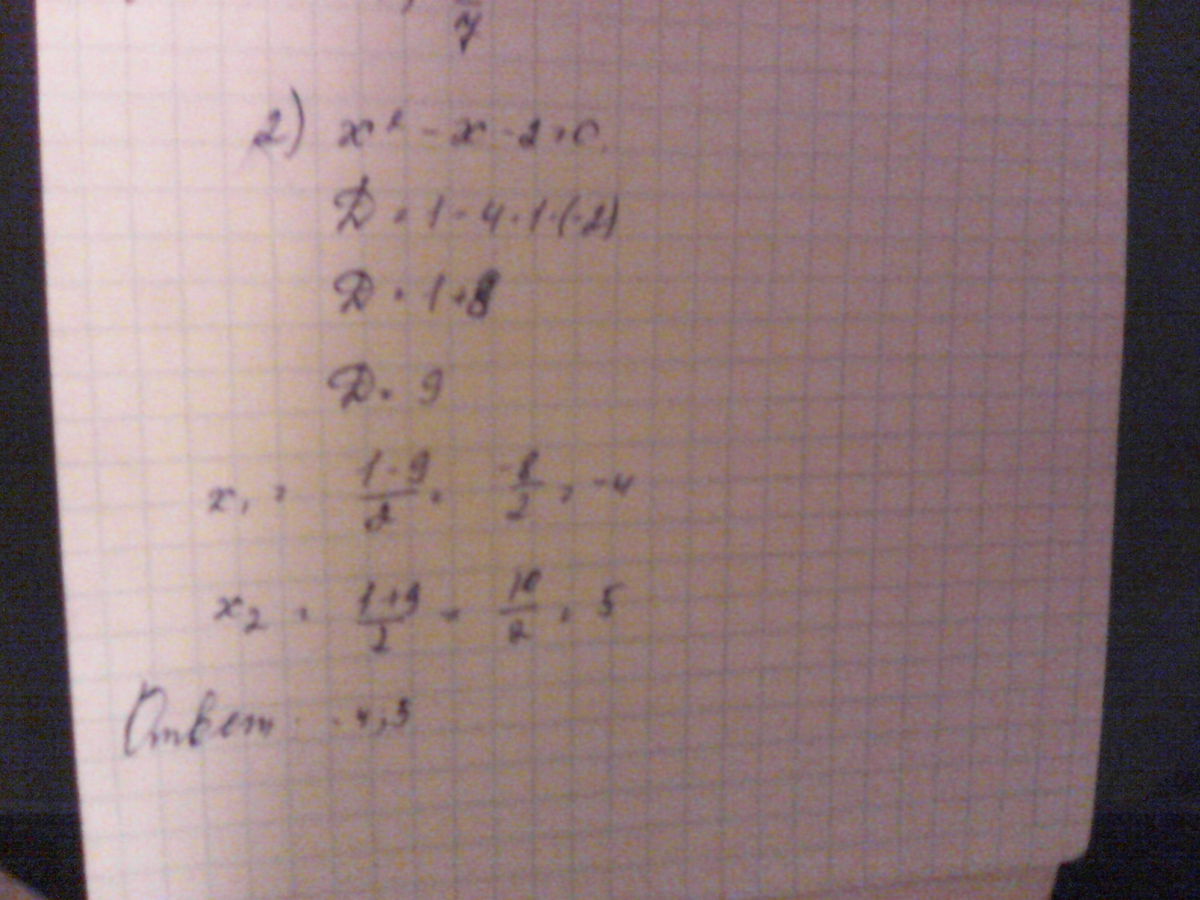 7
2) x² - x - 2 = 0.
D = 1 - 4 · 1 · (-2)
D = 1 + 8
D = 9
x₁ = (1 - 9)/2 = -8/2 = -4
x₂ = (1 + 9)/2 = 10/2 = 5
Ответ: -4; 5